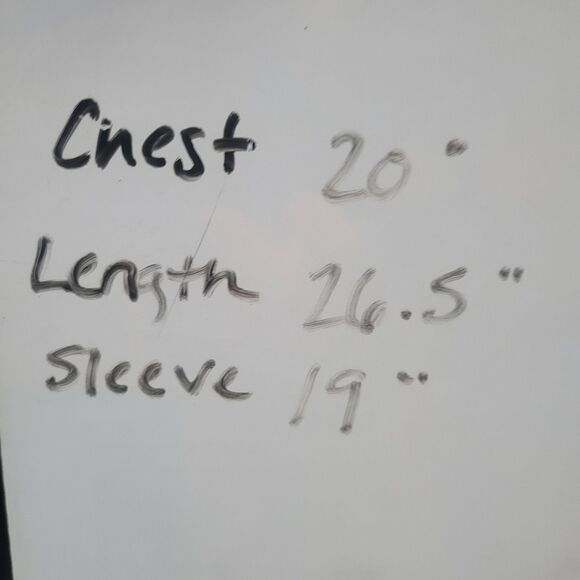 Chest 20"
Length 26.5"
Sleeve 19"